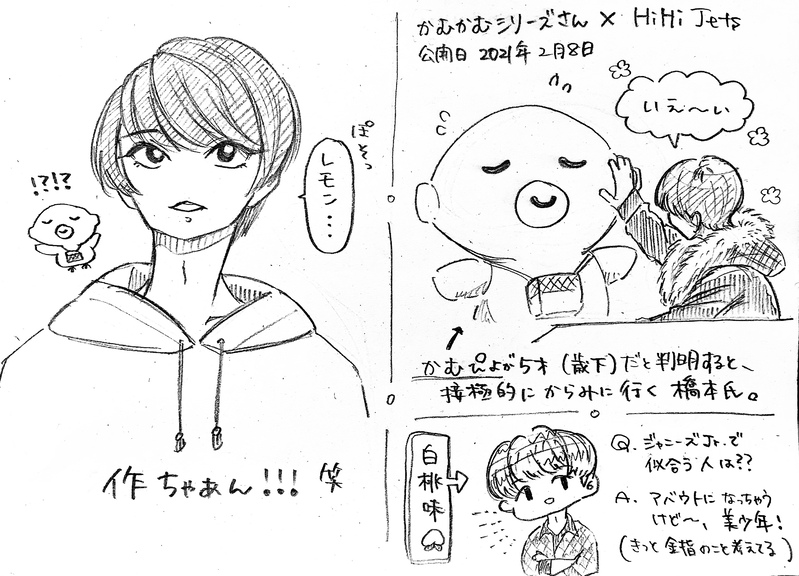 ぽそっ
レモン・・・
!?!?
作ちゃぁん!!! 笑
かむかむシリーズさん × HiHi Jets
公開日 2021年2月8日
いぇ〜い
かむぴよが5才 (歳下)だと判明すると、
接極的にからみに行く橋本氏。
白桃味
Q. ジャニーズJr.で
似合う人は??
A. アバウトになっちゃう
けど〜、美少年!
(きっと金指のこと考えてる)